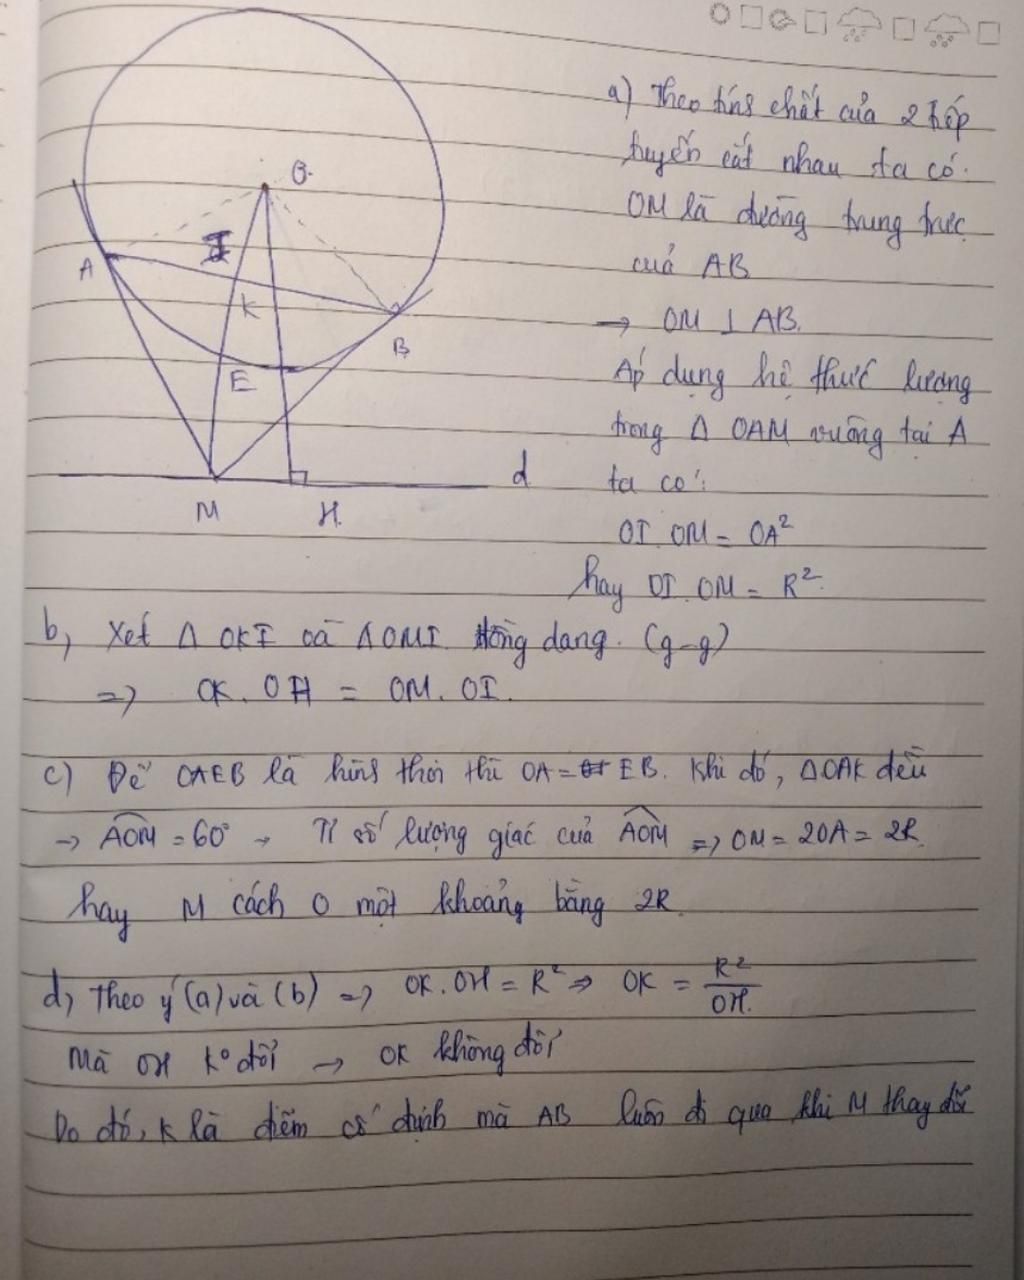 a) Theo tính chất của 2 tiếp
tuyến cắt nhau ta có.
OM là đường trung trực
của AB
→ OM ⊥ AB.
Áp dụng hệ thức lượng
trong Δ OAM vuông tại A
ta có:
OI. OM = OA²
hay OI. OM = R².
O
A
I
K
B
E
M
H
d
b, Xét Δ OKI và Δ OMI đồng dạng. (g-g)
=> OK. OH = OM. OI.
c) Để OAEB là hình thoi thì OA = EB. Khi đó, ΔOAK đều
→ AOM = 60° → Tỉ số lượng giác của AOM => OM = 2OA = 2R.
hay M cách O một khoảng bằng 2R
d, Theo ý (a) và (b) => OK. OH = R² => OK = R²/OH.
Mà OH k° đổi → OK không đổi
Do đó, K là điểm cố định mà AB luôn đi qua khi M thay đổi